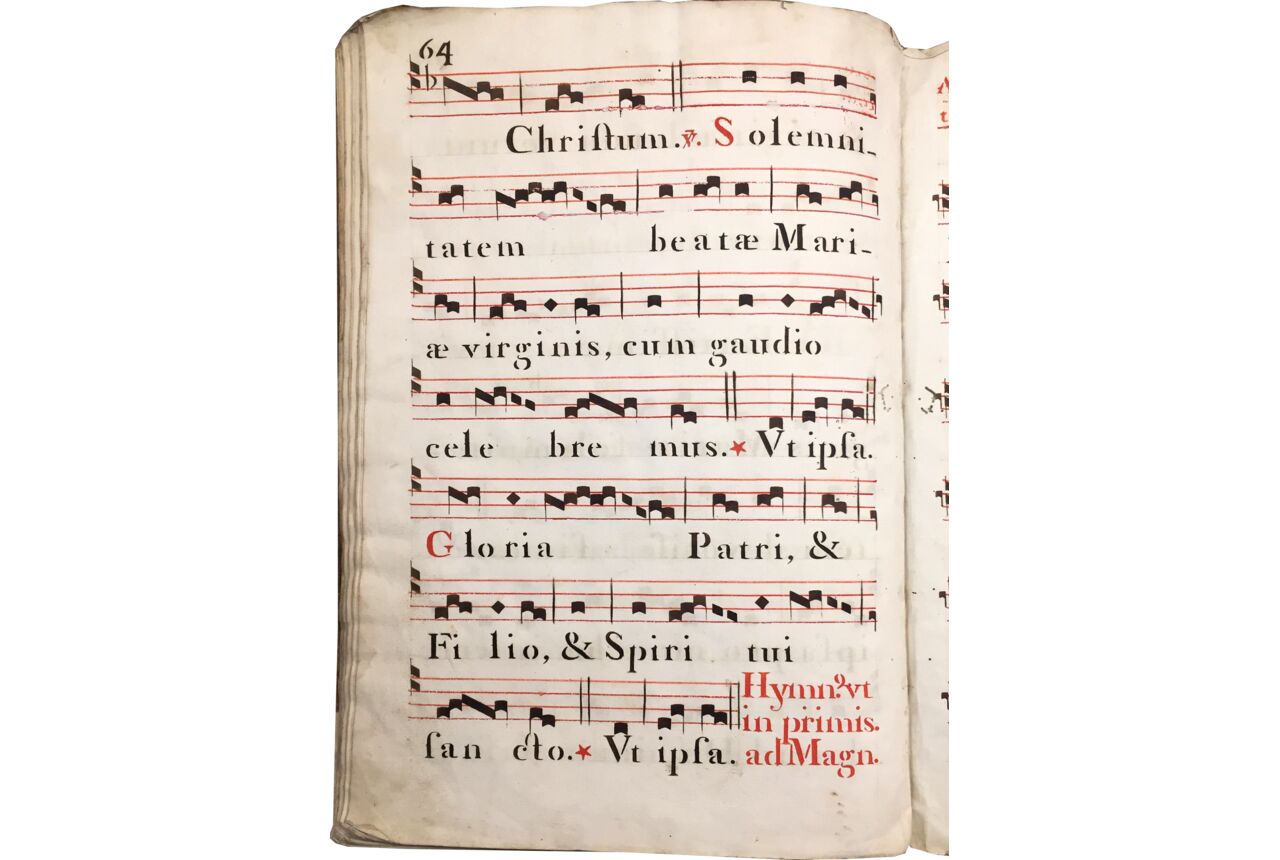 64
Chriſtum. ℣. Solemni-
tatem beatæ Mari-
æ virginis, cum gaudio
cele bre mus.★ Vt ipſa.
Gloria Patri, &
Fi lio, & Spiri tui
ſan cto.★ Vt ipſa.
Hymnꝰ. vt
in primis.
ad Magn.